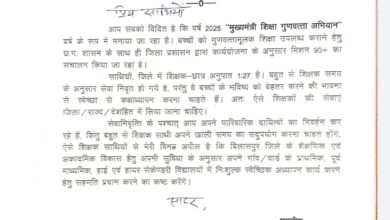 प्रिय साथियों
आप सबको विदित है कि वर्ष 2025 "मुख्यमंत्री शिक्षा गुणवत्ता अभियान"
वर्ष के रूप में मनाया जा रहा है। बच्चों को गुणवत्तामूलक शिक्षा उपलब्ध कराने हेतु
छ.ग. शासन के साथ ही जिला प्रशासन द्वारा कार्ययोजना के अनुसार मिशन 90+ का
संचालन किया जा रहा है।
साथियों, जिले में शिक्षक–छात्र अनुपात 1:27 है। बहुत से शिक्षक समय
के अनुसार सेवा निवृत हो गये है, परंतु वे बच्चों के भविष्य को बेहतर करने की भावना
से स्वेच्छा से कक्षाध्यापन करना चाहते हैं। अतः ऐसे शिक्षकों की सेवाएं
जिला/राज्य/देशहित में लिया जाना चाहिए।
सेवानिवृत्ति के पश्चात् आप अपने पारिवारिक दायित्वों का निवर्हन कर
रहे हैं, किंतु बहुत से शिक्षक साथी अपने खाली समय का सदुपयोग करना चाहते होंगे,
ऐसे शिक्षक साथियों से मेरी विनम्र अपील है कि बिलासपुर जिले के शैक्षणिक एवं
अकादमिक विकास हेतु अपनी सुविधा के अनुसार अपने गांव/वार्ड के प्राथमिक, पूर्व
माध्यमिक, हाई एवं हायर सेकेण्डरी विद्यालयों में निःशुल्क स्वैच्छिक अध्यापन कार्य करने
हेतु सहमति प्रदान करने का कष्ट करेंगे।
सादर,